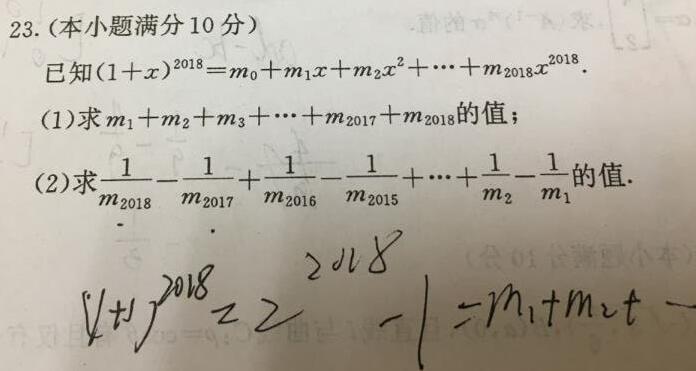 23.(本小题满分10分)
已知(1+x)²⁰¹⁸=m₀+m₁x+m₂x²+⋯+m₂₀₁₈x²⁰¹⁸.
(1)求m₁+m₂+m₃+⋯+m₂₀₁₇+m₂₀₁₈的值;
(2)求1/m₂₀₁₈-1/m₂₀₁₇+1/m₂₀₁₆-1/m₂₀₁₅+⋯+1/m₂-1/m₁的值.
(1+1)²⁰¹⁸=2²⁰¹⁸-1=m₁+m₂+-